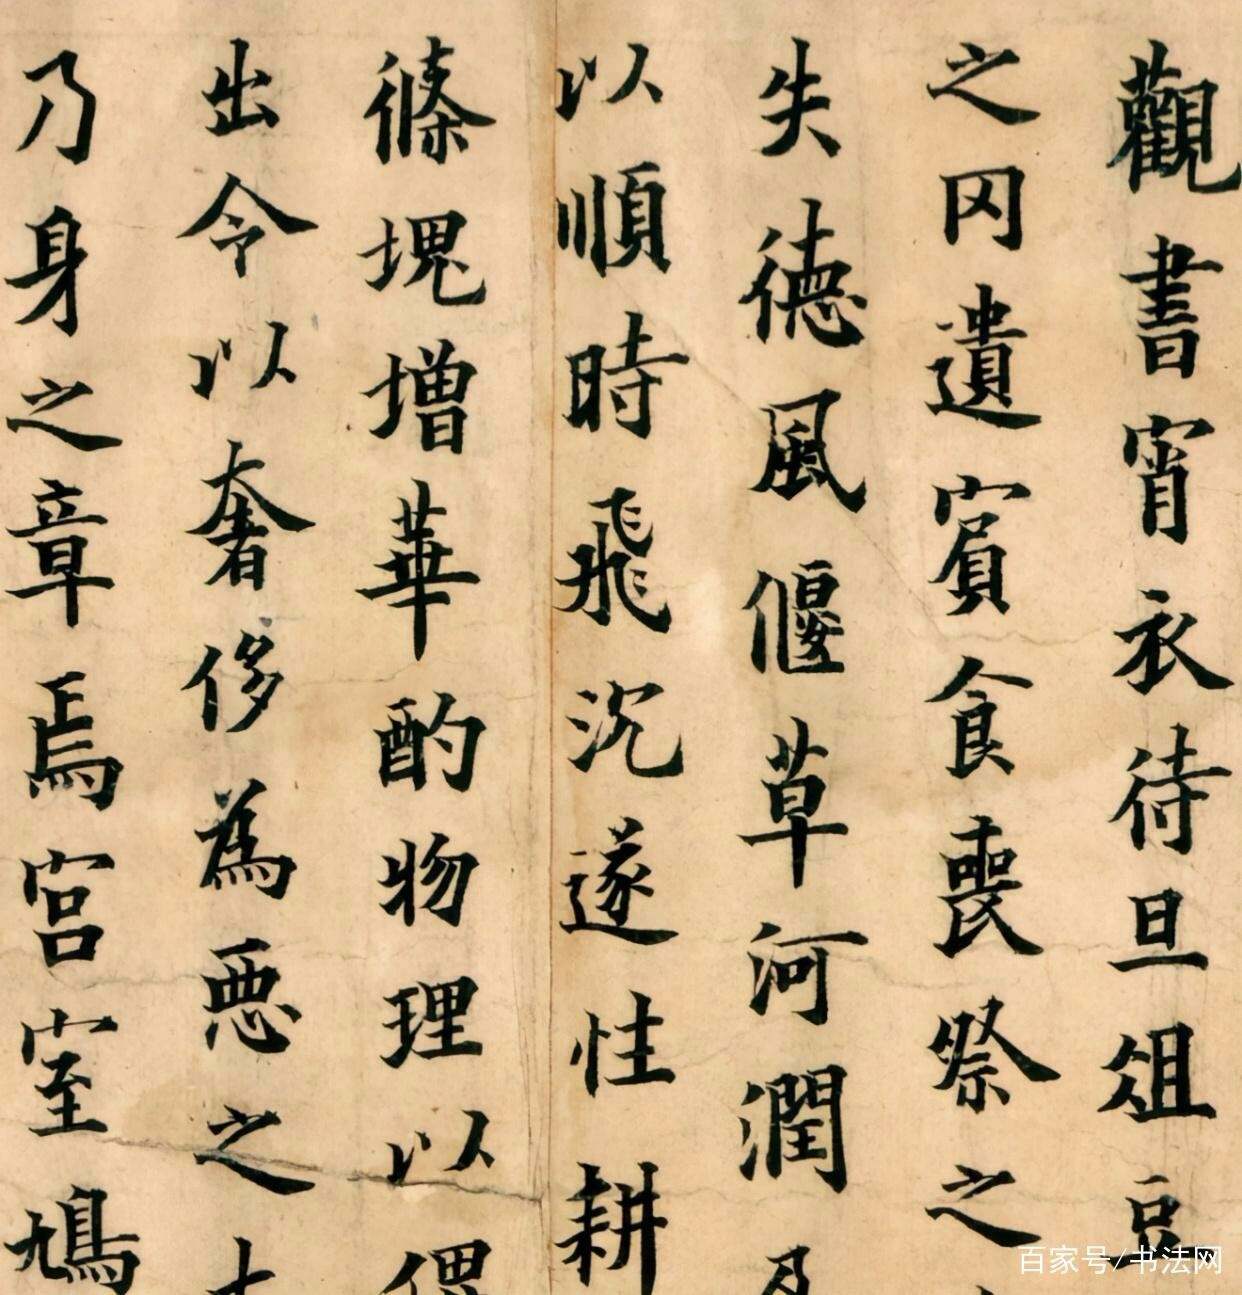 觀書宵衣待旦俎豆
之罔遺賓食喪祭之
失德風偃草河潤
以順時飛沉遂性耕
條塊增華酌物理以
出令以奢侈為惡之
乃身之章焉宮室鳩
百家号/书法网